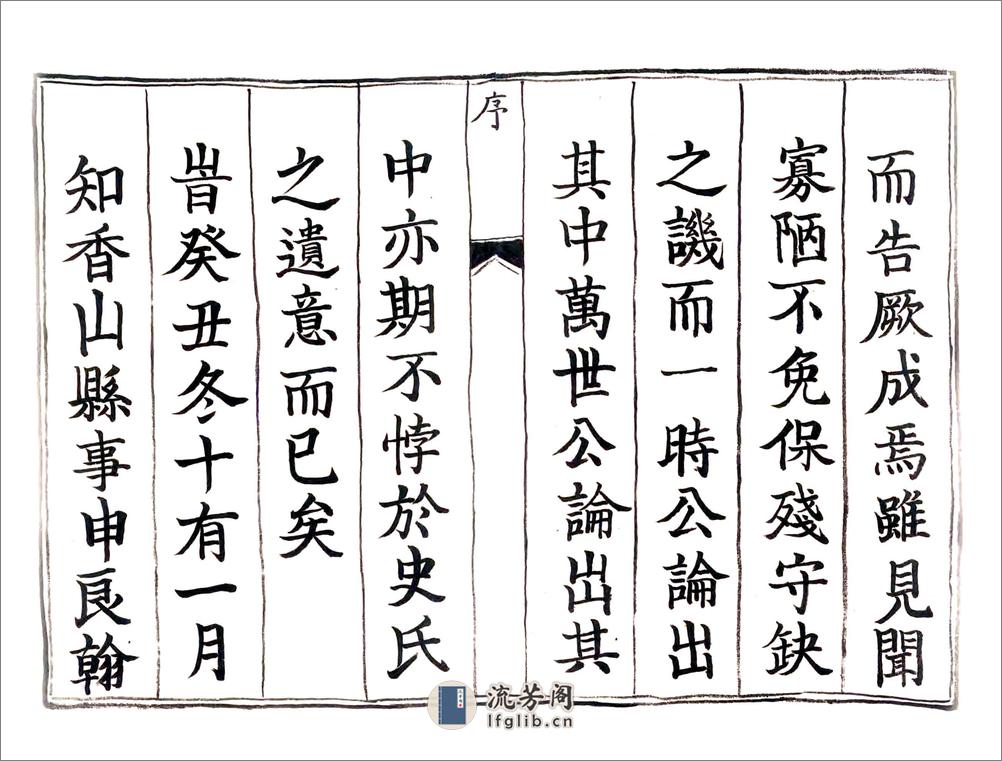 而告厥成焉雖見聞
寡陋不免保殘守缺
之譏而一時公論出
其中萬世公論出其
序
中亦期不悖於史氏
之遺意而已矣
旹癸丑冬十有一月
知香山縣事申良翰
流芳阁
lfglib.cn